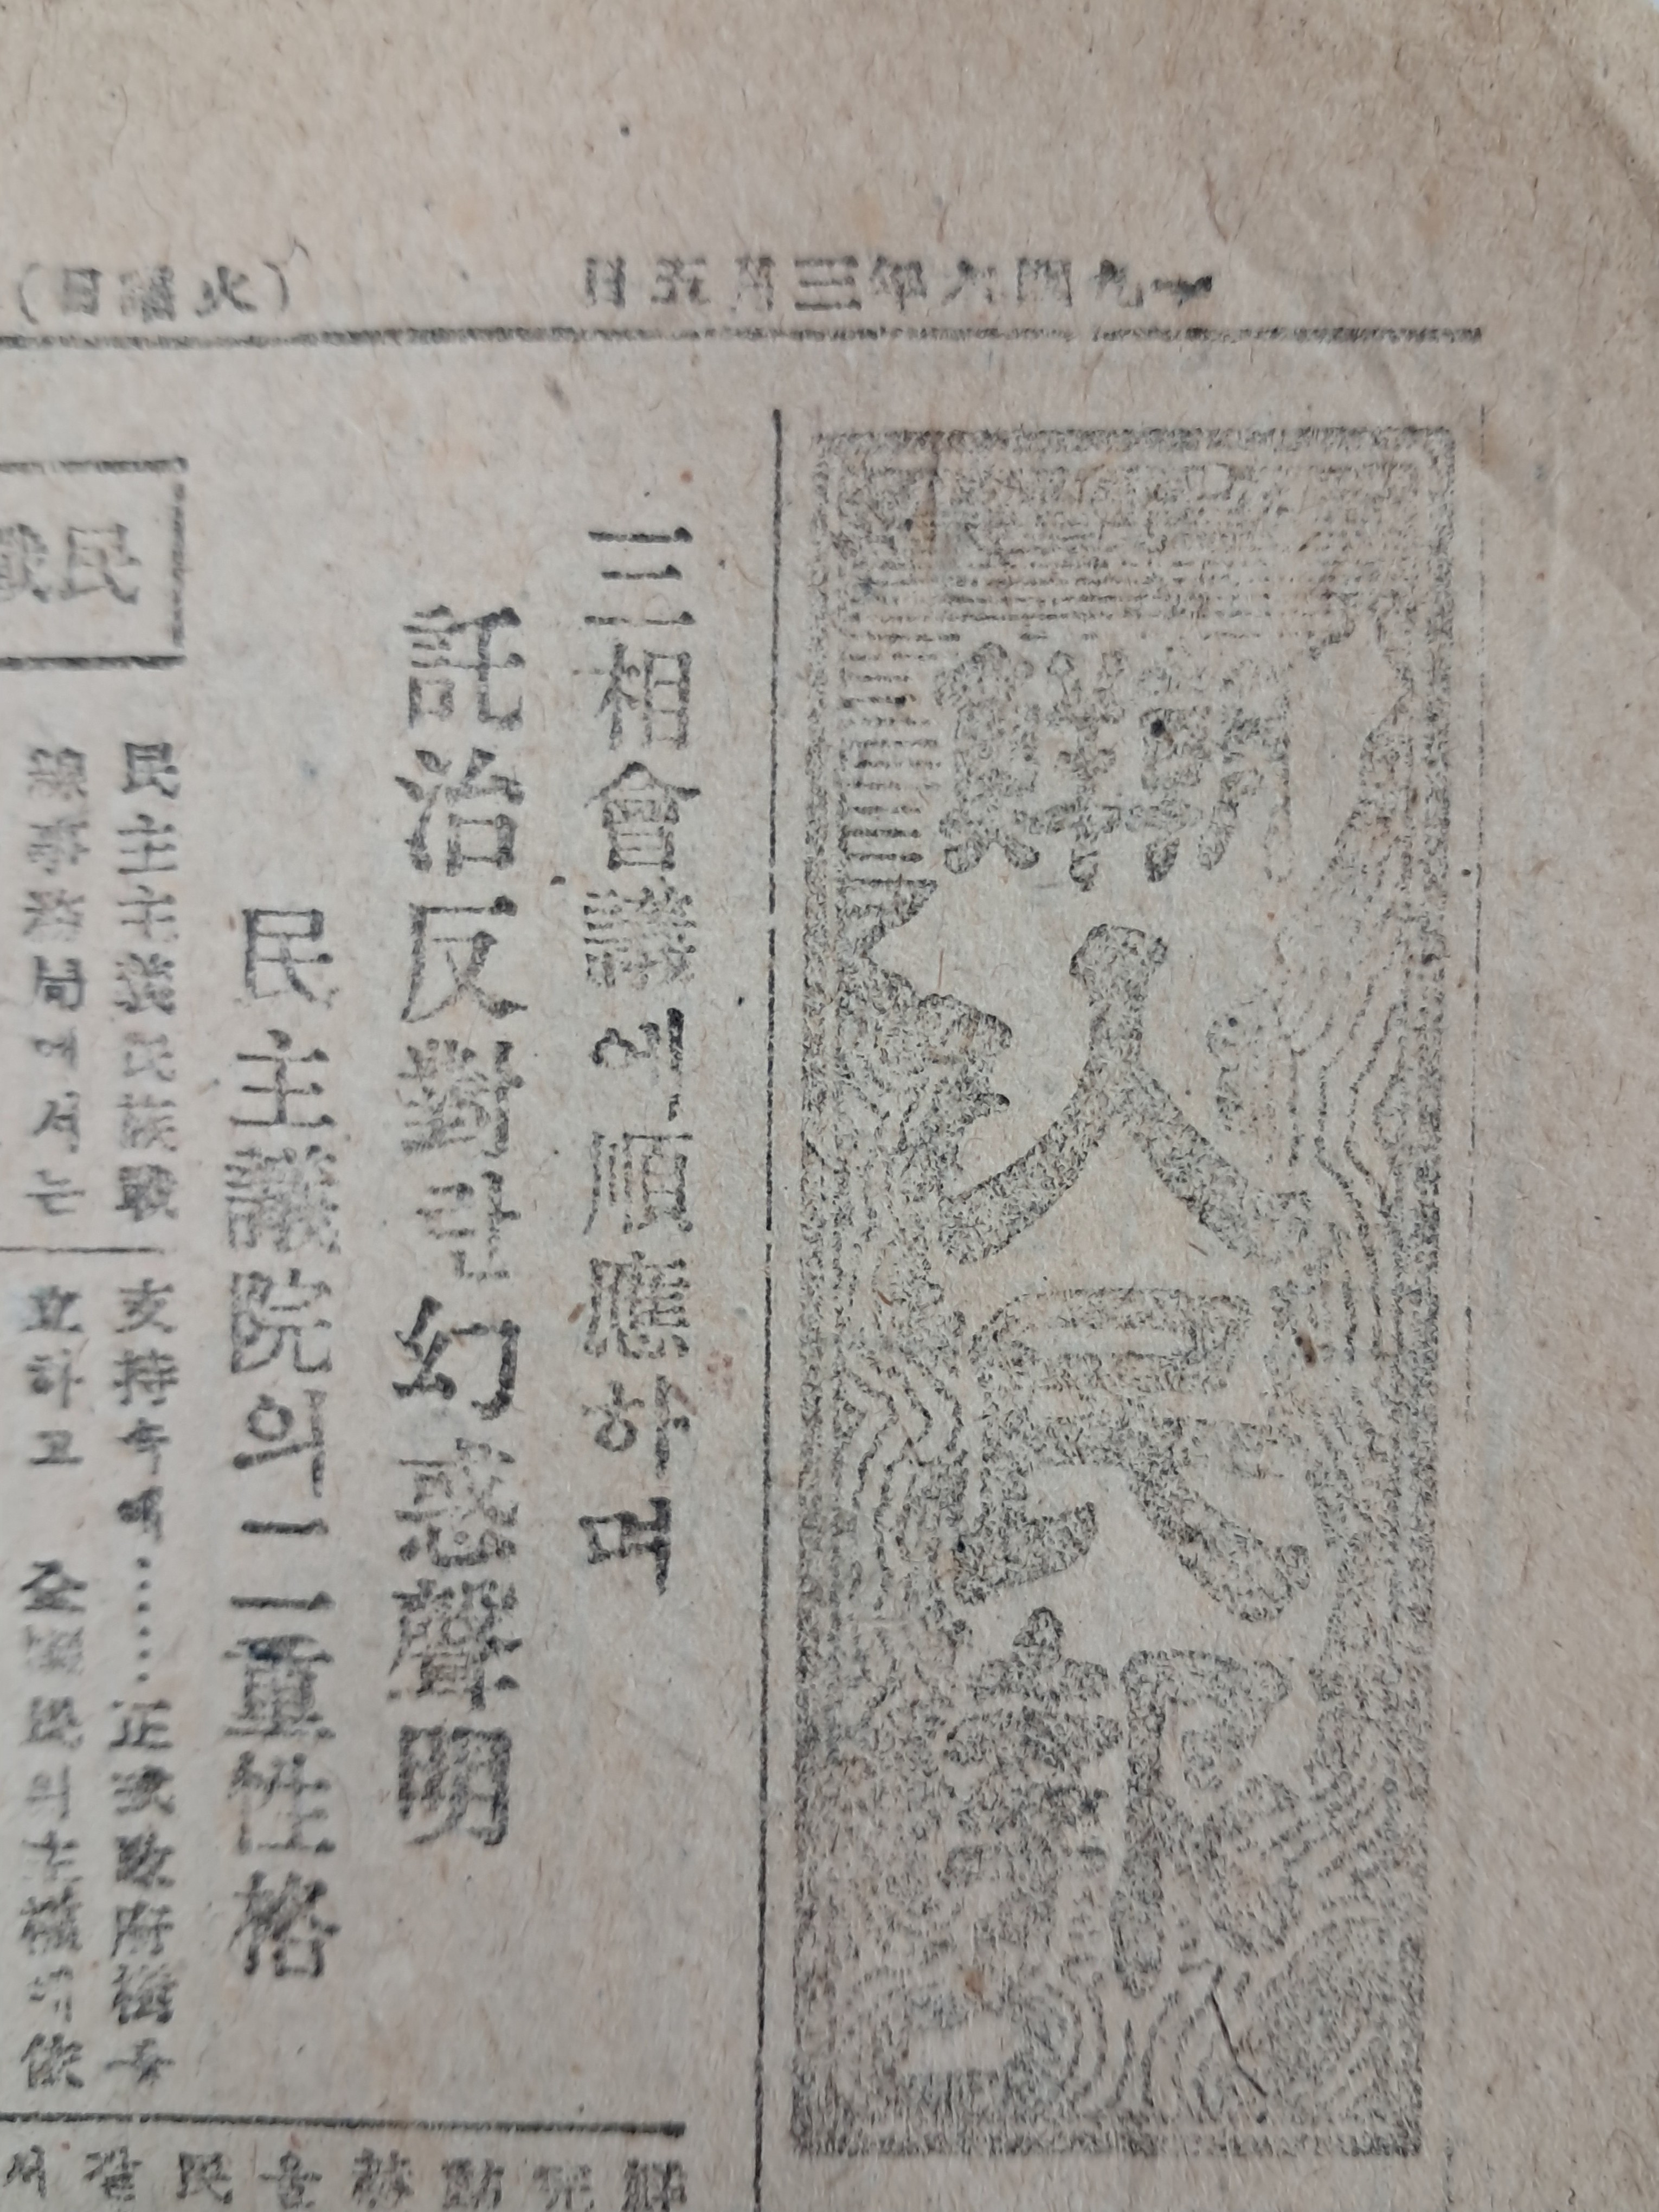 一九四六年三月五日
(火曜日)
人民報
三相會議에順應하며
託治反對란幻惑聲明
民主議院의二重性格
民戰
民主主義民族戰
局에서는
支持속에……正式政府樹
立하고 全國民의主權에依